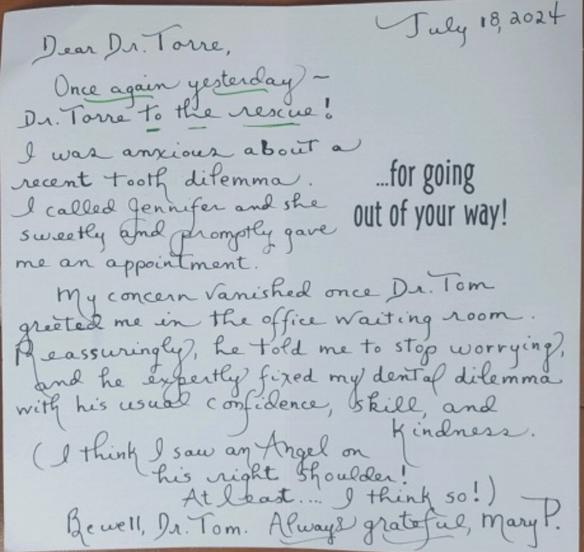 July 18, 2024
Dear Dr. Torre,
Once again yesterday ~
Dr. Torre to the rescue!
I was anxious about a
recent tooth dilemma.
I called Jennifer and she
sweetly and promptly gave
me an appointment.
...for going
out of your way!
My concern vanished once Dr. Tom
greeted me in the office waiting room.
Reassuringly, he told me to stop worrying,
and he expertly fixed my dental dilemma
with his usual confidence, skill, and
kindness.
(I think I saw an Angel on
his right shoulder!
At least.... I think so!)
Be well, Dr. Tom. Always grateful, Mary P.